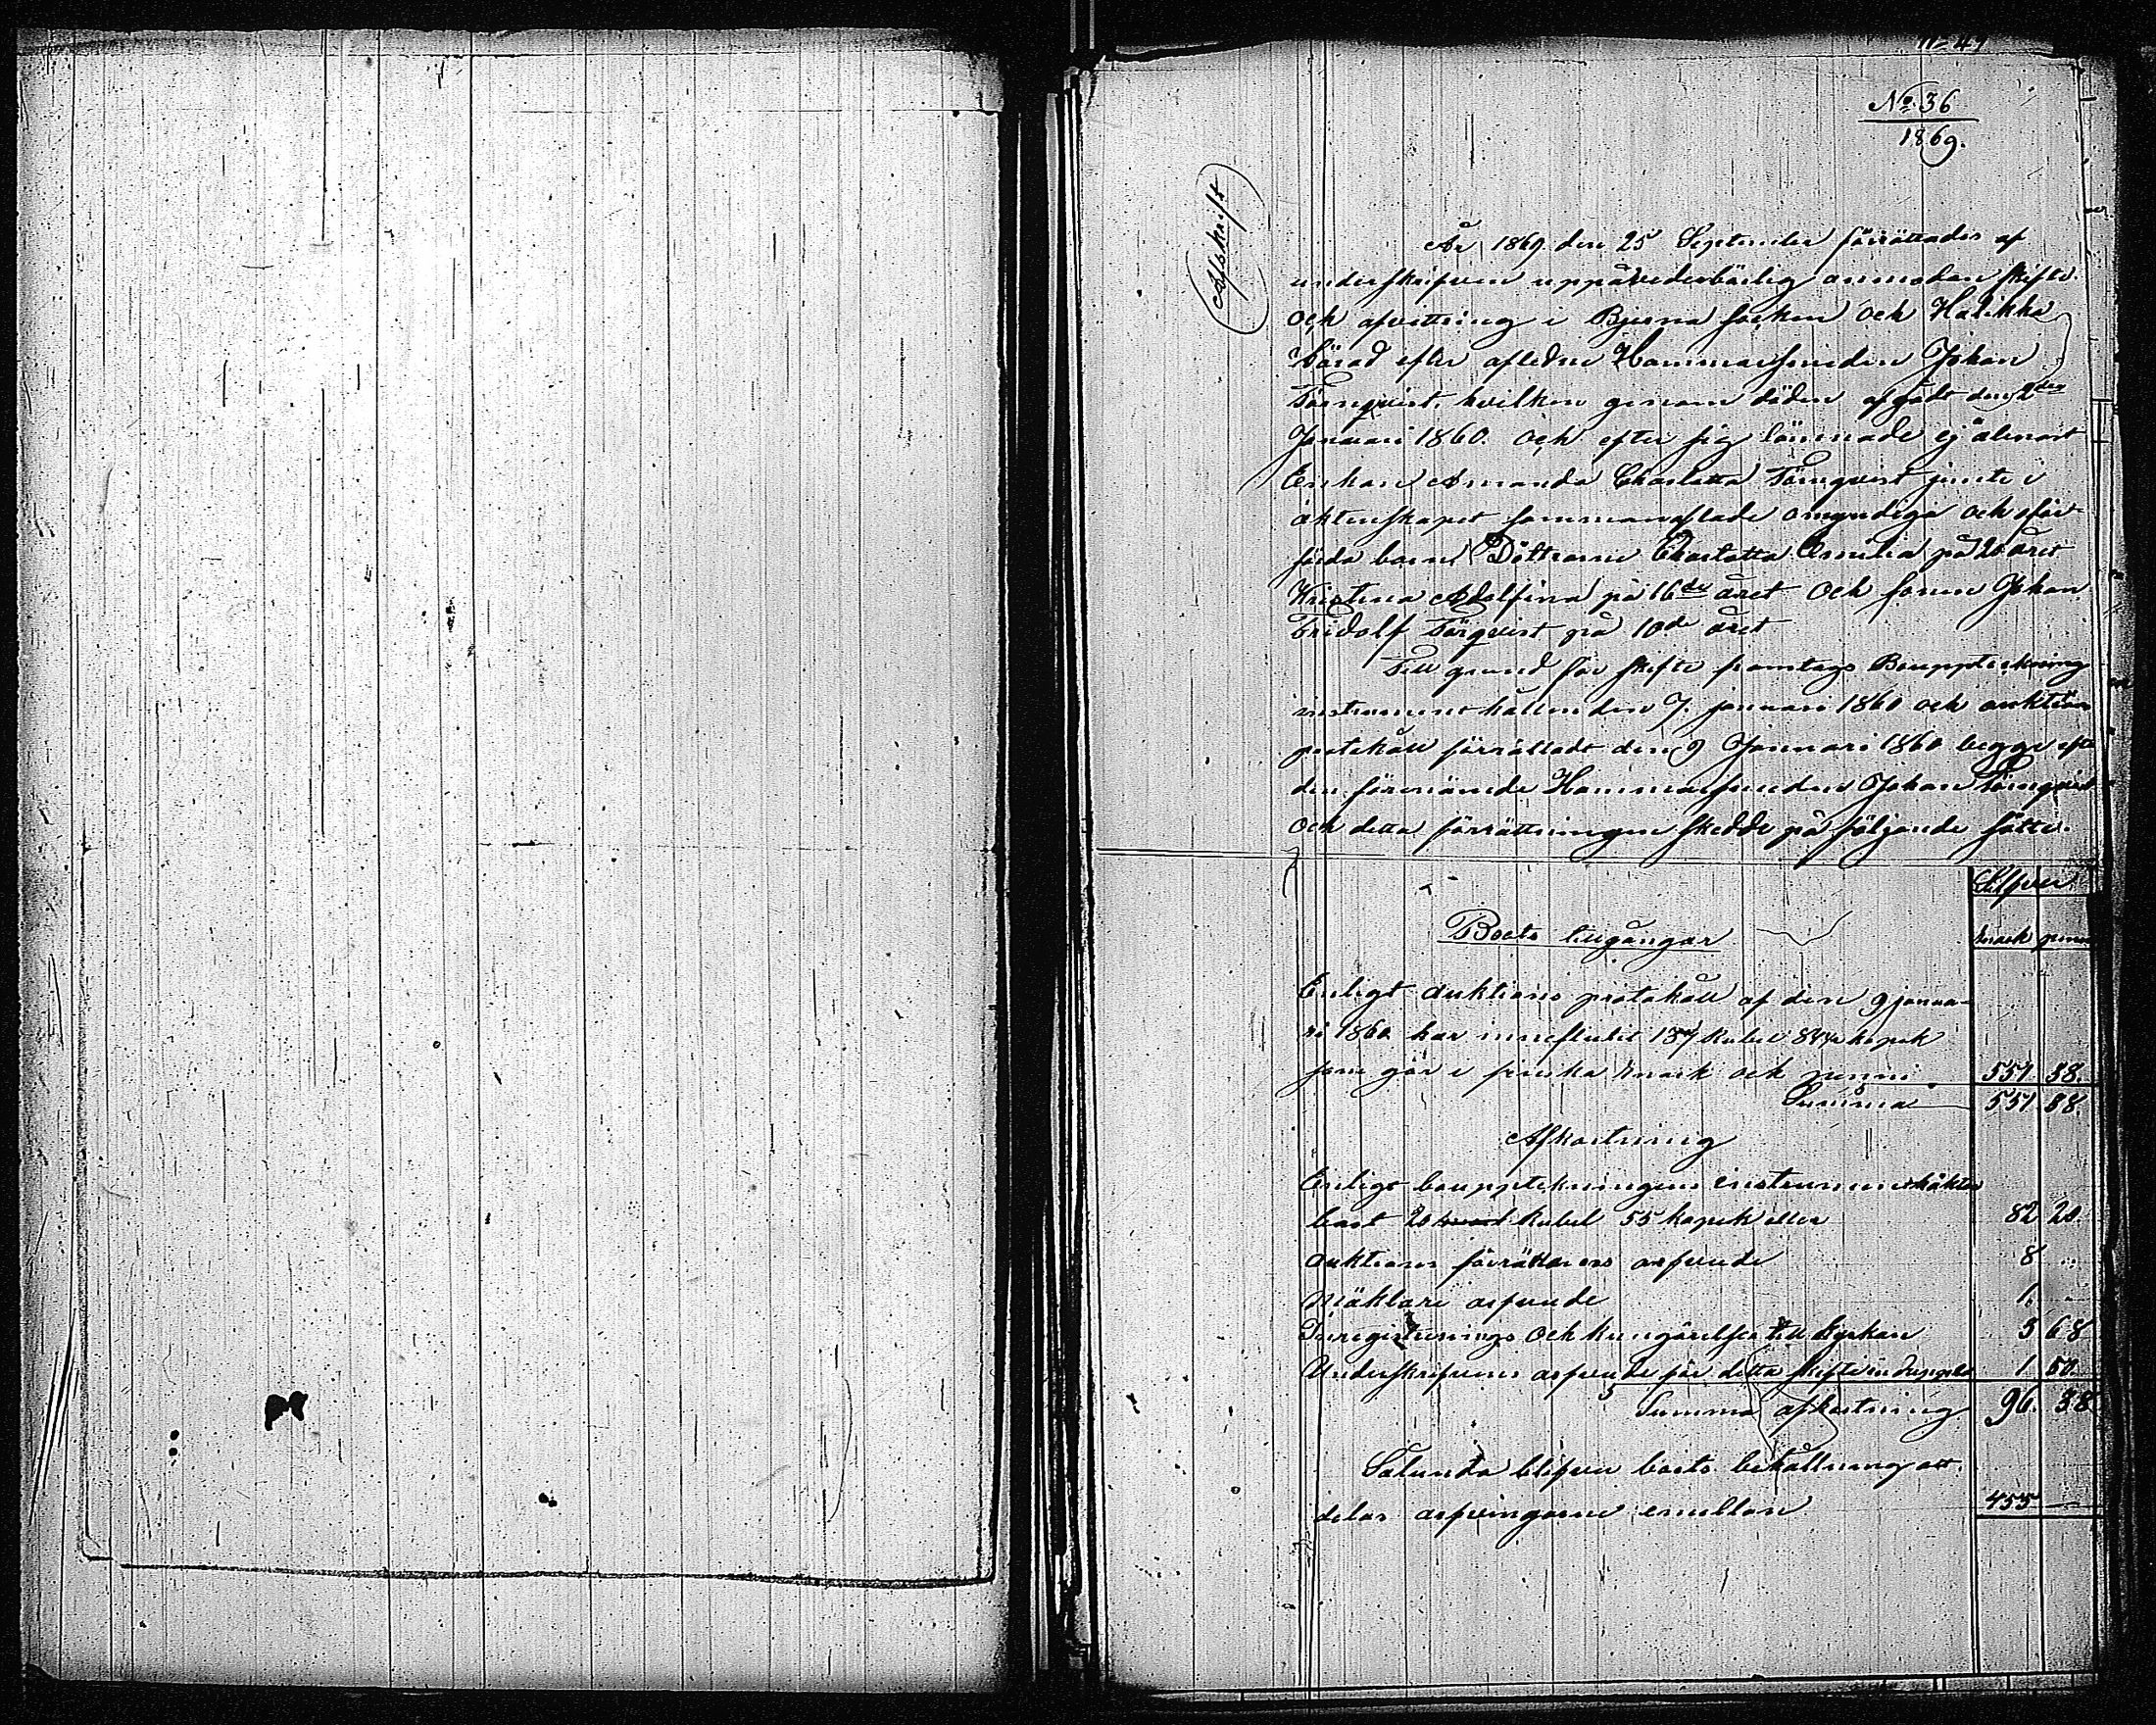 No 36
1869.
Afskrift
År 1869 den 25 September förrättades af
underskrifven uppå vederbörlig anmodan skifte
och afvittring i Bjerna socken och Halikko
härad efter aflidne Hammarsmeden Johan
Törnqvist, hvilken genom döden afgådt den 2den
Januari 1860. och efter sig lämnade ej alenast
Enkan Amanda Charlotta Törnqvist jemte i
äktenskapet sammanaflade omyndiga och oför
sörda barn Döttrarne Charlotta Emilia på 20 året
Kristina Adolfina på 16de året och sonen Johan
Fridolf Törqvist på 10de året
Till grund för skifte framtogs Bouppteckning
instrument hållen den 7. januari 1860 och auktion
protokoll förrättadt den 9 Januari 1860 begge efter
den förenämde Hammarsmeden Johan Törnqvist
och detta förrättningen skedde på följande sätte.
Silfver
Boets tillgångar
mark penni
Enligt auktions protokoll af den 9 janua-
ri 1860 har influtit 137 Rubel kopek
som gör i finska mark och penni 551. 38.
Summa 551 38.
Afkortning
Enligt bouppteckningens instrument
bart 20 Rubel 55 kopek eller 82 20.
auktions förrättarens arfvode 8 ..
Mäklare arfvode 1. -
Inregistrerings och kungörelser till Kyrkan 3 68
Underskrifvens arfvode för detta skifte 1 50.
Summa afkortning 96. 38
Sålunda blifver boets behållning att
delas arfvingarne emellan 455 —